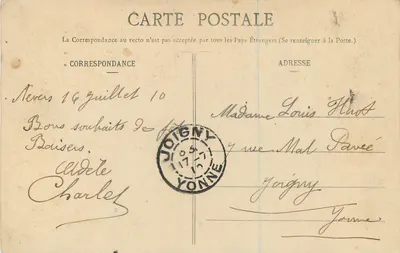 CARTE POSTALE
La Correspondance au recto n'est pas acceptée par tous les Pays Étrangers (Se renseigner à la Poste.)
CORRESPONDANCE
Nevers 16 Juillet 10
Bons souhaits de
Baisers
Adèle
Charlet
JOIGNY
17-7
10
YONNE
ADRESSE
Madame Louis Huot
7 rue Mal Pavée
Joigny
Yonne